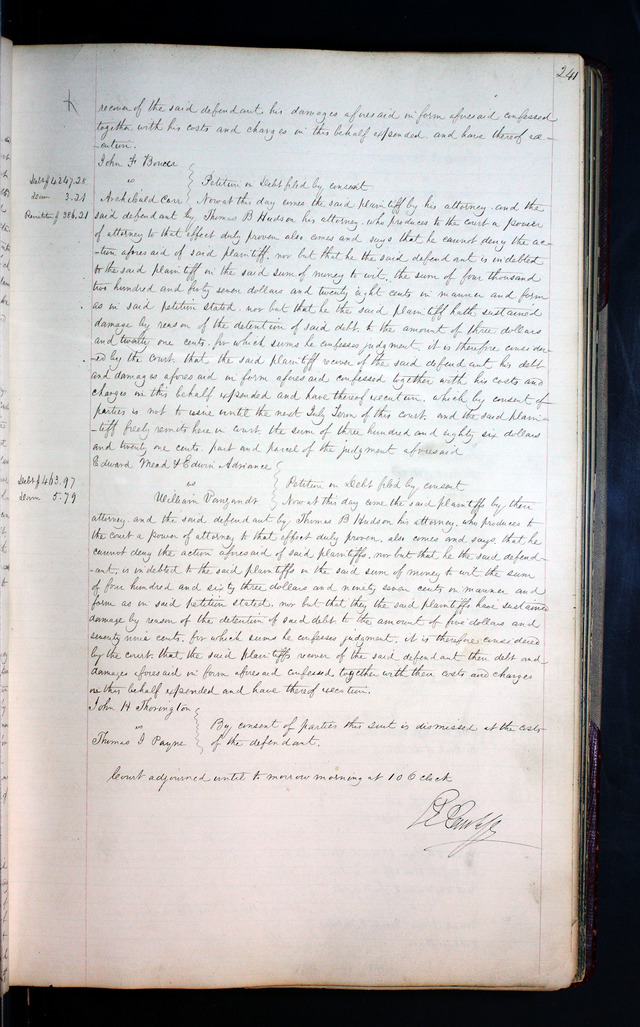 241
recover of the said defendant, his damages aforesaid in form aforesaid confessed
together with his costs and charges in this behalf expended and have thereof ex-
-ecution.
John F
vs } Petition in Debt filed by consent
Debt $4247.28
Dam 3.21
Remitted $386.21
Archibald Carr } Now at this day comes the said plaintiff by his attorney and the
said defendant by Thomas B Hudson his attorney, who produces to the court a power
of attorney to that effect duly proven also comes and says that he cannot deny the ac-
-tion aforesaid of said plaintiff, nor but that he the said defendant is indebted
to the said plaintiff in the said sum of money to wit, the sum of four thousand
two hundred and forty seven dollars and twenty eight cents in manner and form
as in said petition stated, nor but that he the said plaintiff hath sustained
damage by reason of the detention of said debt, to the amount of three dollars
and twenty one cents, for which sums he confesses judgment, it is therefore consider-
-ed by the court that the said plaintiff recover of the said defendant his debt
and damages aforesaid in form aforesaid confessed together with his costs and
charges in this behalf expended and have thereof execution, which by consent of
parties is not to issue until the next July Term of this court, and the said plain-
-tiff freely remits here in court the sum of three hundred and eighty six dollars
and twenty one cents, part and parcel of the judgment aforesaid
Edward Mead & Edwin Adriance
Debt $463.97
Dam 5.79
vs } Petition in Debt filed by consent
William Vanzandt } Now at this day come the said plaintiffs by their
attorney and the said defendant by Thomas B Hudson his attorney, who produces to
the court a power of attorney to that effect duly proven, also comes and says, that he
cannot deny the action aforesaid of said plaintiffs, nor but that he the said defend-
-ant, is indebted to the said plaintiffs in the said sum of money to wit the sum
of four hundred and sixty three dollars and ninety seven cents in manner and
form as in said petition stated, nor but that they the said plaintiffs have sustained
damage by reason of the detention of said debt to the amount of five dollars and
seventy nine cents, for which sums he confesses judgment, it is therefore considered
by the court, that the said plaintiffs recover of the said defendant their debt and
damages aforesaid in form aforesaid confessed together with their costs and charges
in this behalf expended and have thereof execution.
John H Thorington
vs } By consent of parties this suit is dismissed at the costs
Thomas J Payne } of the defendant.
Court adjourned until to morrow morning at 10 O clock